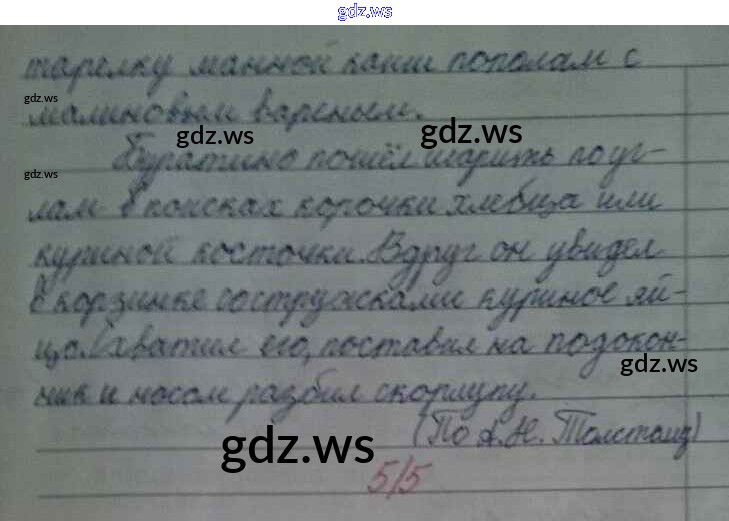 gdz.ws
тарелку манной каши пополам с
gdz.ws
малиновым вареньем.
gdz.ws
gdz.ws
Буратино пошёл шарить по уг-
gdz.ws
лам в поисках корочки хлебца или
куриной косточки. Вдруг он увидел
в корзинке со стружками куриное яй-
цо. Схватил его, поставил на подокон-
gdz.ws
ник и носом разбил скорлупу.
(По А. Н. Толстому)
gdz.ws
5/5